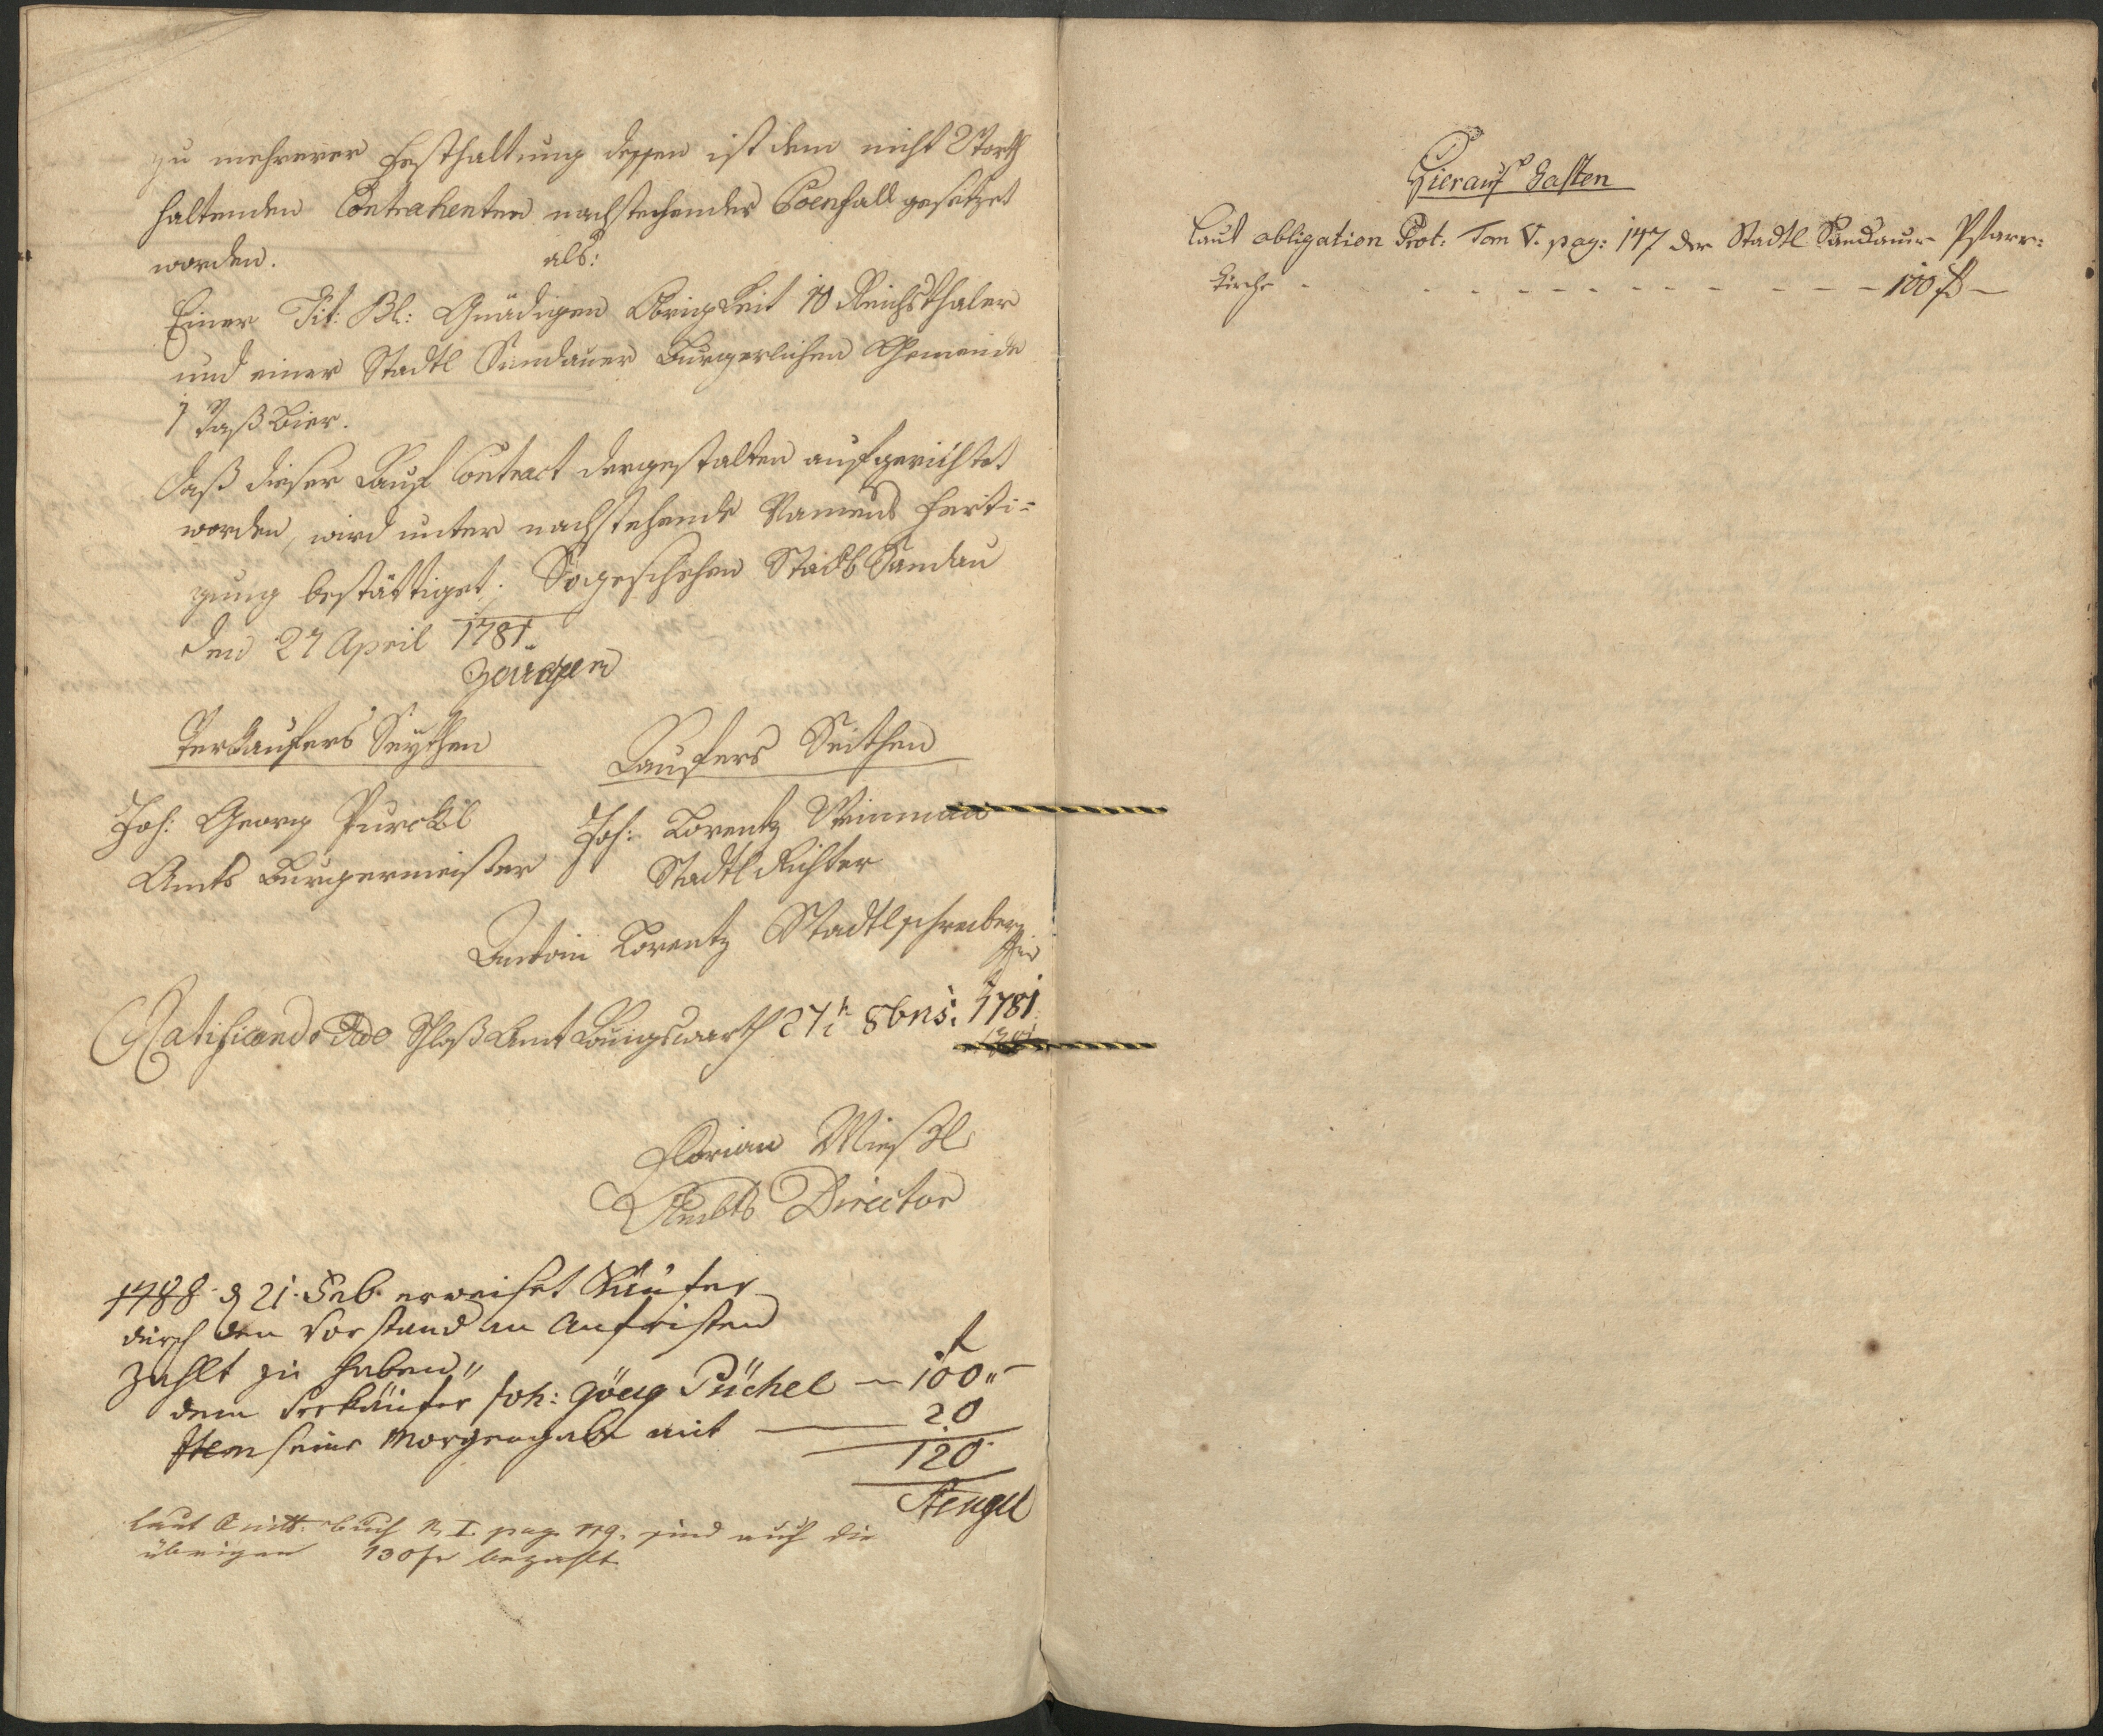 zu mehrerer Festhaltung dessen ist dem nicht Worth
haltenden Contrahenten nachstehender Poenfall gesetzet
worden. als:
Einer Tit: Pl: Gnädigen Obrigkeit 10 Reichsthaler
und einer Stadtl Sandauer Burgerlichen Gemeinde
1 Vaß Bier.
daß dieser Kauf Contract dergestalten aufgerichtet
worden, wird unter nachstehende Namens Ferti=
gung bestättiget. So geschehen Stadtl Sandau
den 27 April 1781.
Zeugen
Verkaufers Seythen
Kaufers Seithen
Joh: Georg Purckl
Joh: Lorentz Weinman
Amts Burgermeister
Stadtl Richter
Antoni Lorentz Stadtlschreiber
Ratificando Schloß Amt Königswarth 27t 8bris: 1781
Florian
Ambts Director
1788 d 21. Feb. erweiset Käufer
durch den Vorstand an Anfristen
zahlt zu haben"
f
dem Verkäufer Joh: Görg Püchel — 100"—
Item seine Morgengab mit — 20
120
Stengel
laut Quitt. buch N. I. pag. 119. sind auch die
übrigen 130 fr bezahlt
Hierauf haften
Laut obligation Prot: Tom V. pag: 147 der Stadtl Sandauer Pfarr:
kirche - - - - - - - - - - 100 f —